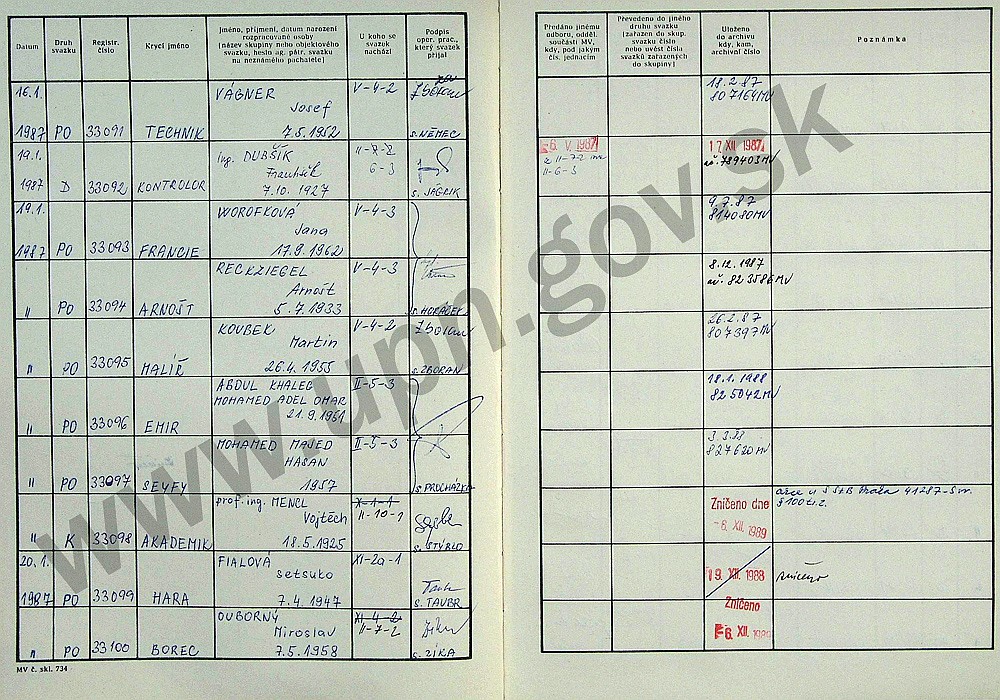 Datum
Druh
svazku
Registr.
číslo
Krycí jméno
Jméno, příjmení, datum narození
rozpracované osoby
[název skupiny nebo objektového
svazku, heslo ag. pátr. svazku
na neznámého pachatele]
U koho se
svazek
nachází
Podpis
oper. prac.,
který svazek
přijal
Předáno jinému
odboru, odděl.
součásti MV,
kdy, pod jakým
čís. jednacím
Převedeno do jiného
druhu svazku
[zařazen do skup.
svazku číslo
nebo uvést čísla
svazků zařazených
do skupiny]
Uloženo
do archivu
kdy, kam,
archivní číslo
Poznámka
16.1.
1987 PO 33091 TECHNIK
VÁGNER
Josef
7.5.1952
V-4-2
s. NĚMEC
18.2.87
807164MV
19.1.
1987 D 33092 KONTROLOR
ing. DUBŠÍK
František
7.10.1927
6-3
s. JAGRIK
6. V. 1987
II-6-3
17 XII 1987
789403MV
19.1.
1987 PO 33093 FRANCIE
WOROFKOVÁ
Jana
17.9.1962
V-4-3
9.7.87
814080MV
" PO 33094 ARNOŠT
RECKZIEGEL
Arnošt
5.7.1933
V-4-3
s. HORÁČEK
8.12.1987
823586MV
" PO 33095 MALÍŘ
KOUBEK
Martin
26.4.1955
V-4-2
s. ZBORAN
26.2.87
807397MV
" PO 33096 EMIR
ABDUL KHALEG
MOHAMED ADEL OMAR
21.9.1951
II-5-3
18.1.1988
825042MV
" PO 33097 SEYFY
MOHAMED MAJED
HASAN
1957
II-5-3
s. PROCHÁZKA
3.3.88
827620MV
" K 33098 AKADEMIK
prof. ing. MENCL
Vojtěch
18.5.1925
X-1-1
II-10-1
s. STÝBLO
Zničeno dne
-6. XII. 1989
20.1.
1987 PO 33099 HARA
FIALOVÁ
Setsuko
7.4.1947
XI-2a-1
s. TAUBR
19. XII. 1988
zničeno
" PO 33100 BOREC
OUBORNÝ
Miroslav
7.5.1958
XI-4-2
II-7-2
s. ZÍKA
Zničeno
-6. XII. 1989
MV č. skl. 734
www.upn.gov.sk